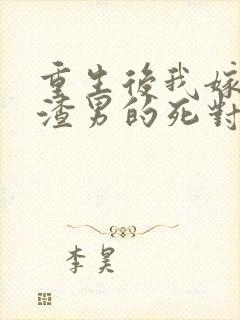 重生後我嫁
渣男的死對
李昊